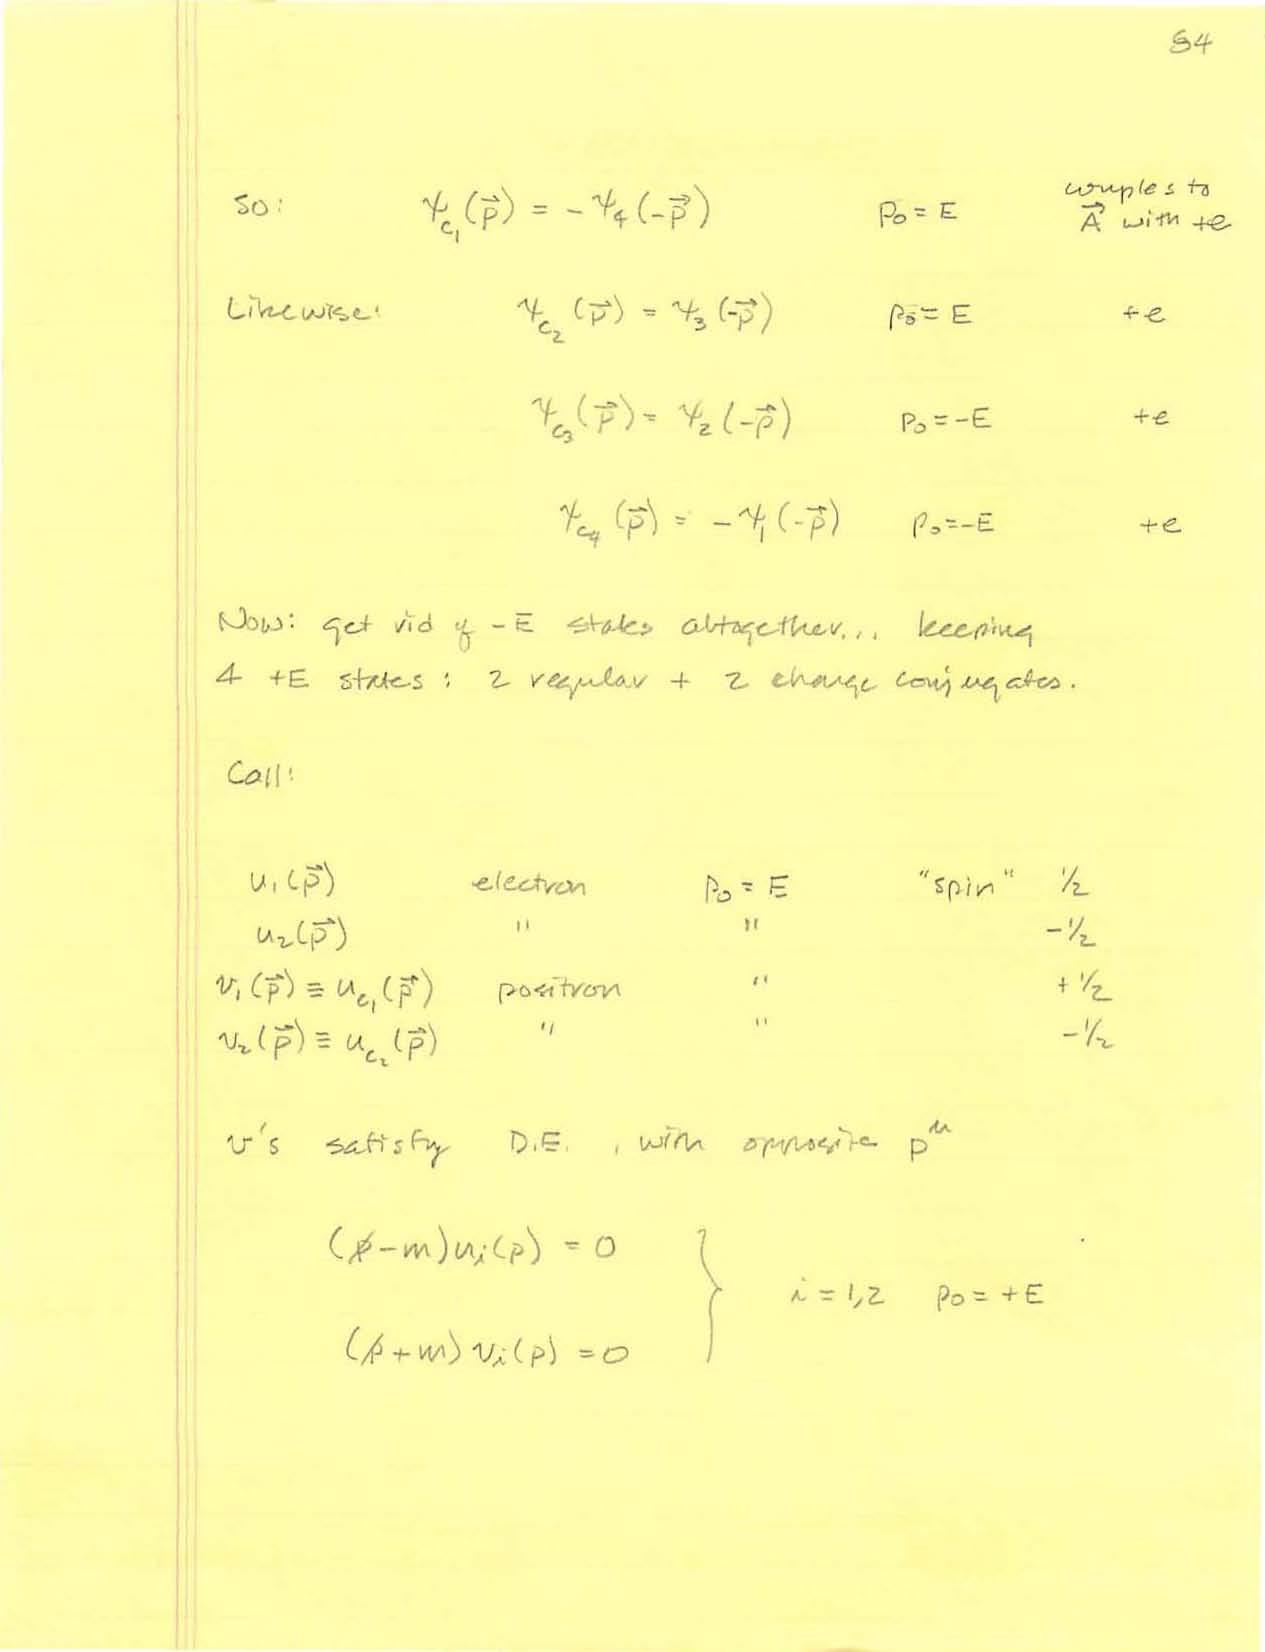 54
So: ψ_c₁(p⃗) = -ψ₄(-p⃗) p₀ = E couples to A⃗ with +e
Likewise: ψ_c₂(p⃗) = ψ₃(-p⃗) p₀ = E +e
ψ_c₃(p⃗) = ψ₂(-p⃗) p₀ = -E +e
ψ_c₄(p⃗) = -ψ₁(-p⃗) p₀ = -E +e
Now: get rid of -E states altogether... keeping
4 +E states : 2 regular + 2 charge conjugates.
Call:
u₁(p⃗) electron p₀ = E "spin" 1/2
u₂(p⃗) " " -1/2
v₁(p⃗) ≡ u_c₁(p⃗) positron " +1/2
v₂(p⃗) ≡ u_c₂(p⃗) " " -1/2
v's satisfy D.E. , with opposite p^μ
(p̸-m)uᵢ(p) = 0
} i = 1,2 p₀ = +E
(p̸+m)vᵢ(p) = 0